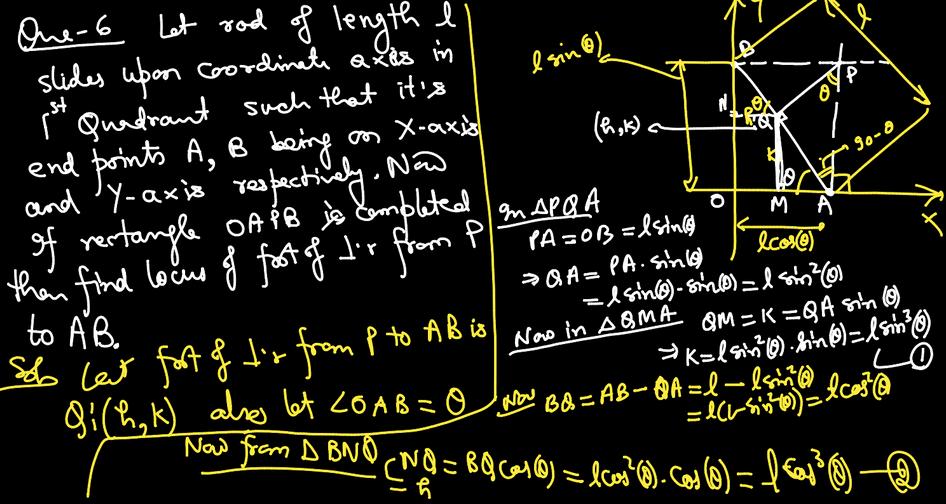 Que-6 Let rod of length l
slides upon coordinate axis in
1st Quadrant such that it's
end points A, B being on X-axis
and Y-axis respectively. Now
If rectangle OAPB is completed
then find locus of foot of ⊥r from P
to AB.
Soln Let foot of ⊥r from P to AB is
Q(h,k) also let ∠OAB = θ
Now from ΔBNQ
NQ = BQ cos(θ) = l cos²(θ). cos(θ) = l cos³(θ) — ②
h
l sin(θ)
Y
l
B
P
N
h
θ
Q
θ
(h, k)
k
θ
90-θ
O
M
A
X
l cos(θ)
In ΔPQA
PA = OB = l sin(θ)
⇒ QA = PA. sin(θ)
= l sin(θ). sin(θ) = l sin²(θ)
Now in ΔQMA QM = K = QA sin(θ)
⇒ K = l sin²(θ). sin(θ) = l sin³(θ)
①
Now BQ = AB - QA = l - l sin²(θ)
= l(1-sin²(θ)) = l cos²(θ)